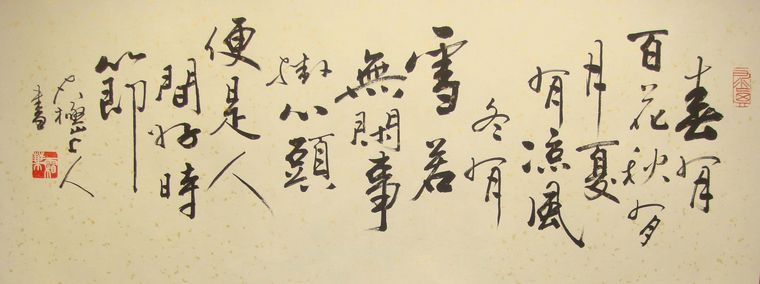 春有
百花秋有
月夏
有凉風
冬有
雪若
無閑事
掛心頭
便是人
間好時
節
太極山上人
書